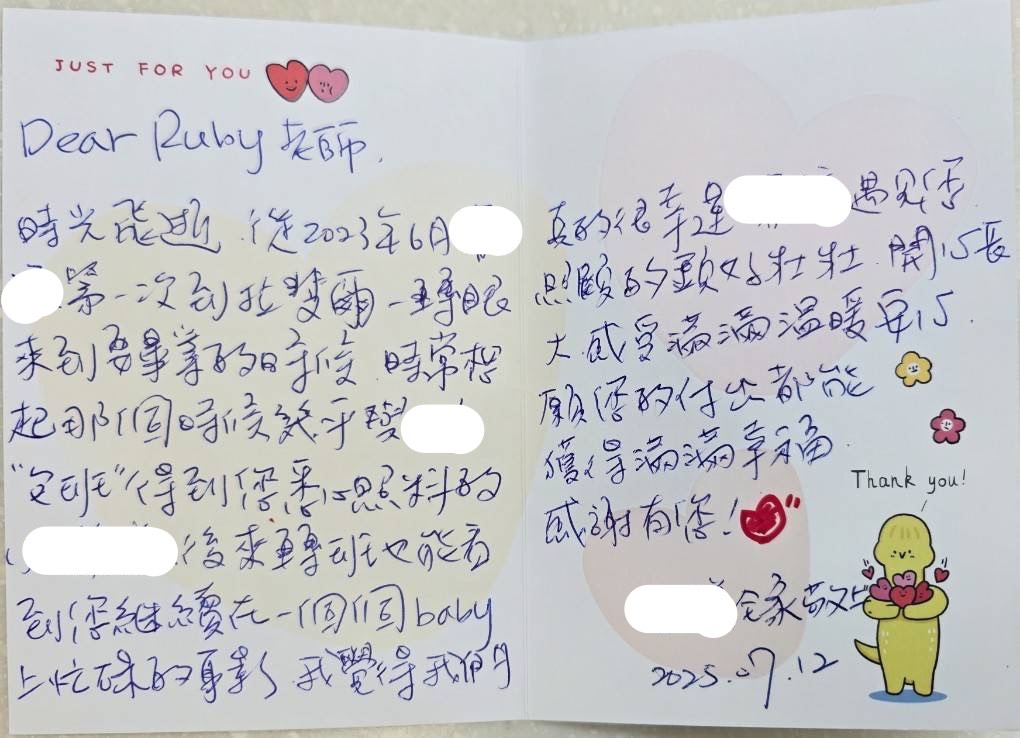 JUST FOR YOU
Dear Ruby 老師,
時光飛逝,從2023年6月
第一次到拉斐爾一轉眼
來到要畢業的時候,時常想
起那個時候幾乎變
"包班"得到您悉心照料的
後來轉班也能看
到您繼續在一個個baby
上忙碌的身影,我覺得我們
真的很幸運 遇見您
照顧的頭好壯壯,開心長
大,感受滿滿溫暖安心.
願您的付出都能
獲得滿滿幸福.
感謝有您!
Thank you!
全家敬上
2025.07.12